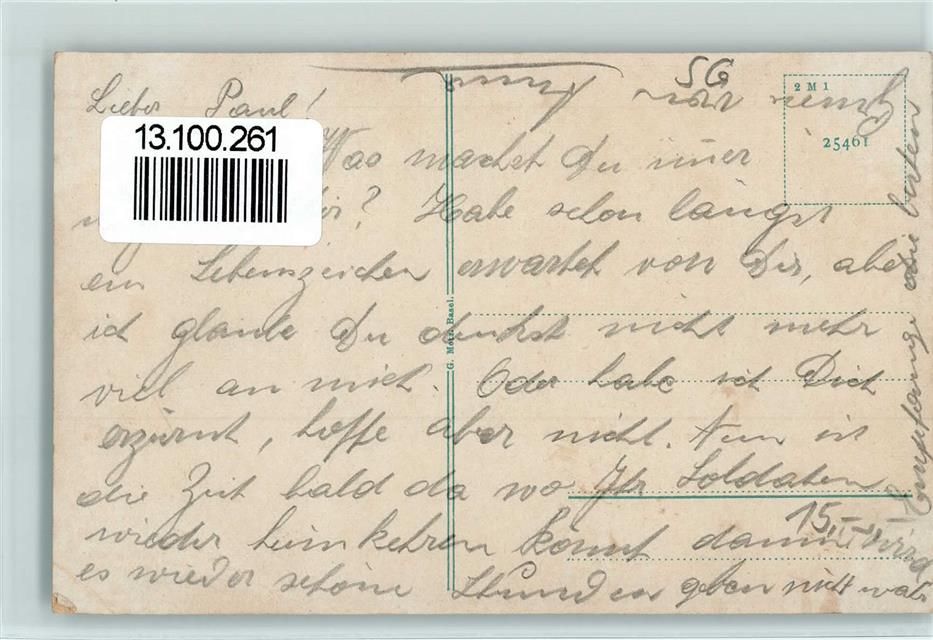 Lieber Paul!
Was machst Du imer
ein Lebenszeichen erwartet von Dir, aber
ich glaube Du denkst nicht mehr
viel an mich. Oder habe ich Dich
erzürnt, hoffe aber nicht. Nun ist
die Zeit bald da wo Ihr Soldaten
wieder heim kehren könnt dann wird
es wieder schöne Stunden geben nicht wahr
Empfange die besten
13.100.261
? Habe schon längst
SG
2 M 1
25461
G. Metz, Basel.
15,-